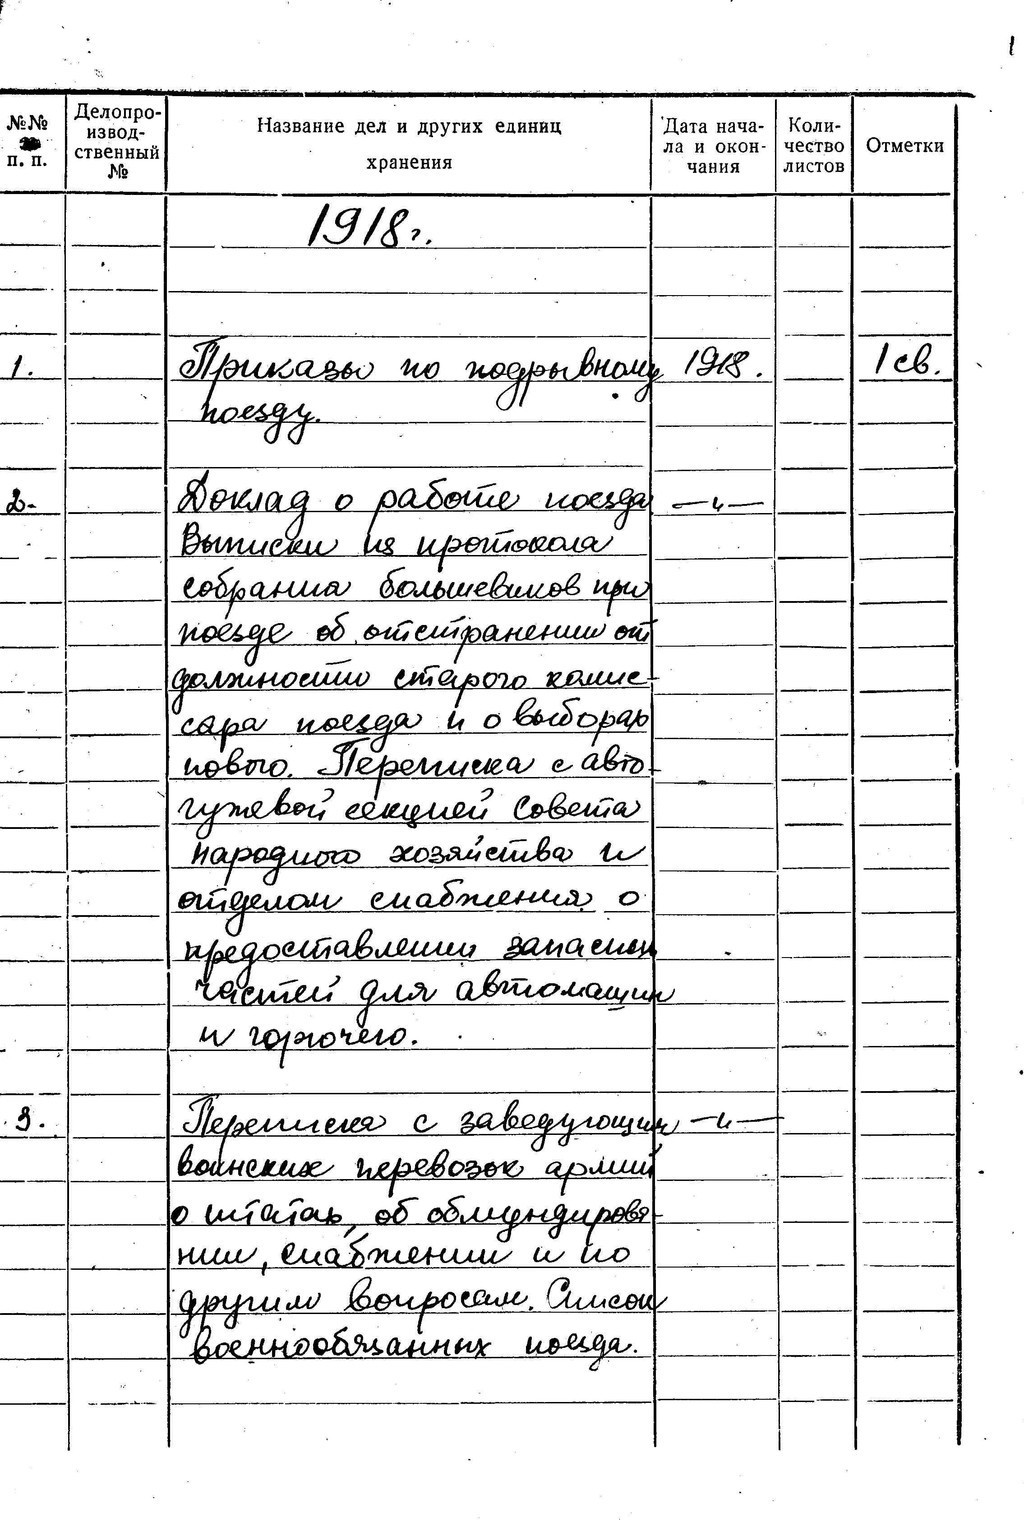 1
№№ п. п.
Делопроизвод-ственный №
Название дел и других единиц хранения
Дата нача-ла и окон-чания
Коли-чество листов
Отметки
1918г.
1. Приказы по подрывному 1918. 1 св.
поезду.
2. Доклад о работе поезда —"—
Выписки из протокола
собрания большевиков при
поезде об отстранении от
должности старого комис-
сара поезда и о выборах
нового. Переписка с авто-
гужевой секцией Совета
народного хозяйства и
отделом снабжения о
предоставлении запасных
частей для автомашин
и горючего.
3. Переписка с заведующим —"—
воинских перевозок армии
о штатах, об обмундирова-
нии, снабжении и по
другим вопросам. Список
военнообязанных поезда.